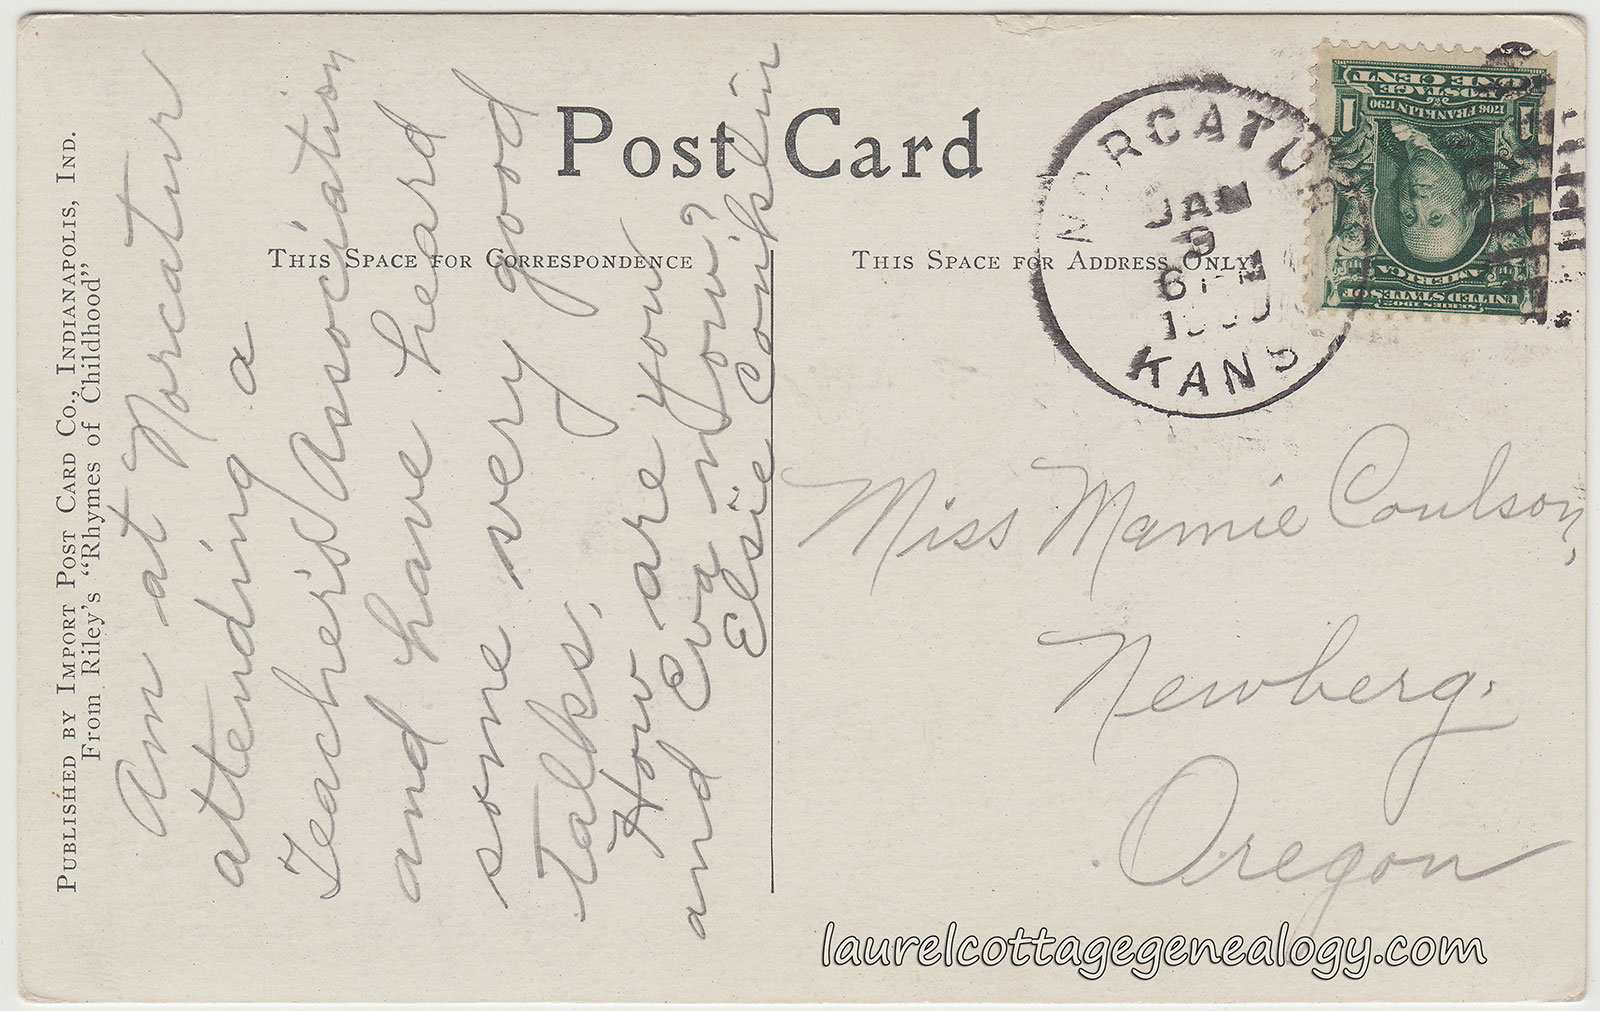 PUBLISHED BY IMPORT POST CARD CO., INDIANAPOLIS, IND.
From Riley's "Rhymes of Childhood"
Post Card
THIS SPACE FOR CORRESPONDENCE
THIS SPACE FOR ADDRESS ONLY
Am at Norcatur
attending a
Teacher's Association
and have heard
some very good
talks.
How are you
and Eva now?
Elsie Conklin
NORCATUR
JAN
9
6
KANS
ONE CENT
POSTAGE
1706 FRANKLIN 1790
1 1
SERIES 1902
UNITED STATES OF
AMERICA
Miss Mamie Coulson,
Newberg.
Oregon
laurelcottagegenealogy.com